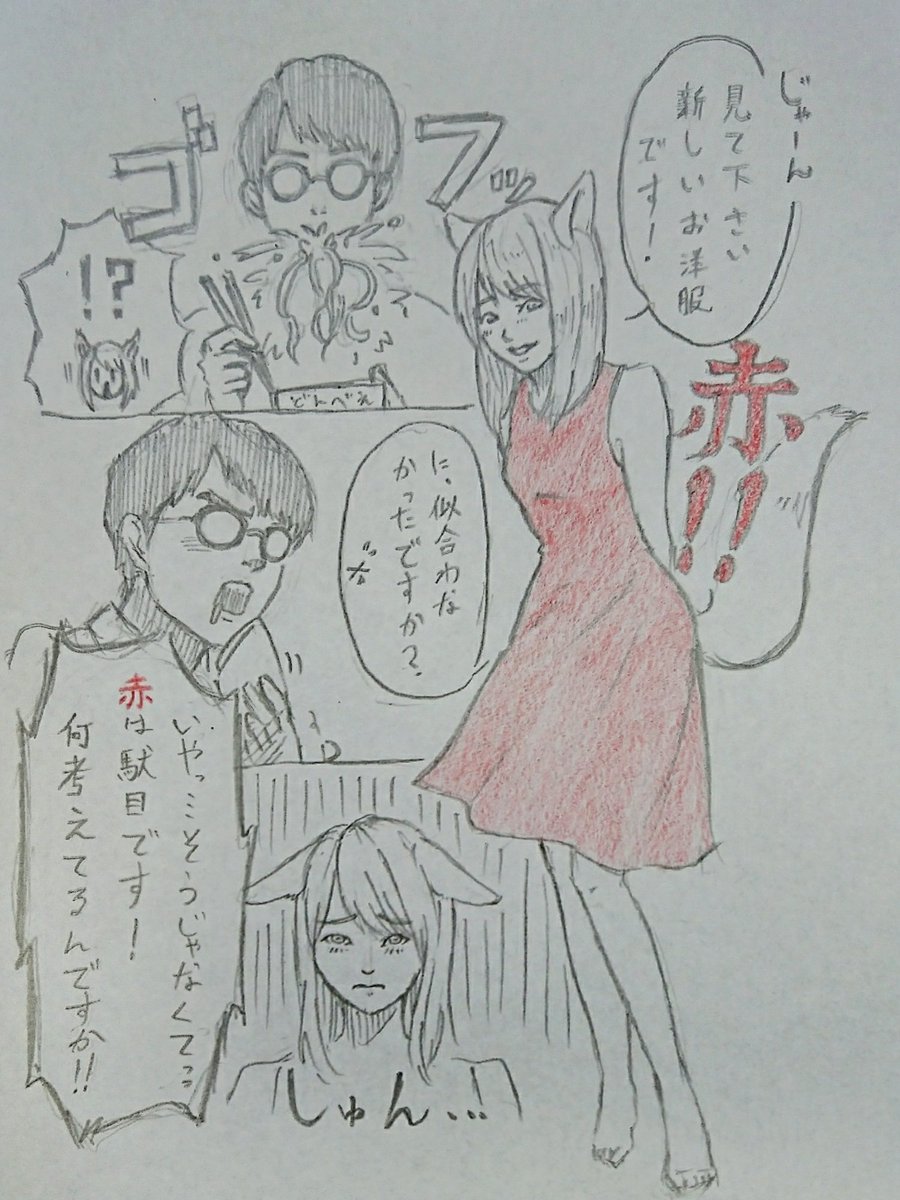 じゃーん
見て下さい
新しいお洋服
です!
赤!!
ゴフッ
!?
どんべえ
に、似合わな
かったですか?
いやっこそうじゃなくてっ
赤は駄目です!
何考えてるんですか!!
しゅん…